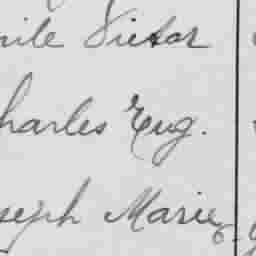 mile Victor
harles Eug.
seph Marie